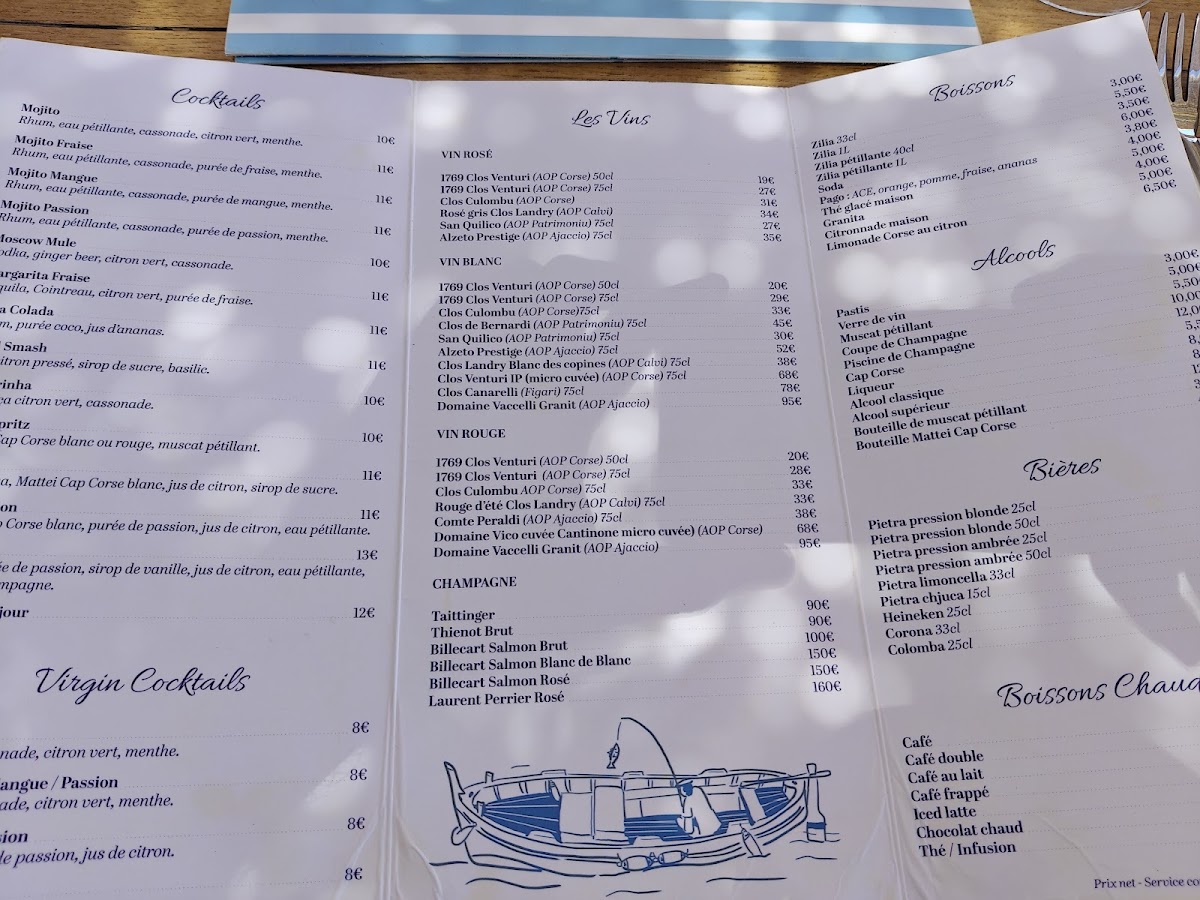 Cocktails
Mojito
Rhum, eau pétillante, cassonade, citron vert, menthe. 10€
Mojito Fraise
Rhum, eau pétillante, cassonade, purée de fraise, menthe. 11€
Mojito Mangue
Rhum, eau pétillante, cassonade, purée de mangue, menthe. 11€
Mojito Passion
Rhum, eau pétillante, cassonade, purée de passion, menthe. 11€
Moscow Mule
odka, ginger beer, citron vert, cassonade. 10€
argarita Fraise
quila, Cointreau, citron vert, purée de fraise. 11€
a Colada
m, purée coco, jus d'ananas. 11€
Smash
itron pressé, sirop de sucre, basilic. 11€
rinha
ca citron vert, cassonade. 10€
pritz
Cap Corse blanc ou rouge, muscat pétillant. 10€
a, Mattei Cap Corse blanc, jus de citron, sirop de sucre. 11€
on
Corse blanc, purée de passion, jus de citron, eau pétillante. 11€
e de passion, sirop de vanille, jus de citron, eau pétillante, 13€
mpagne.
jour 12€
Virgin Cocktails
nade, citron vert, menthe. 8€
angue / Passion
ade, citron vert, menthe. 8€
sion
de passion, jus de citron. 8€
8€
Les Vins
VIN ROSÉ
1769 Clos Venturi (AOP Corse) 50cl 19€
1769 Clos Venturi (AOP Corse) 75cl 27€
Clos Culombu (AOP Corse) 31€
Rosé gris Clos Landry (AOP Calvi) 34€
San Quilico (AOP Patrimoniu) 75cl 27€
Alzeto Prestige (AOP Ajaccio) 75cl 35€
VIN BLANC
1769 Clos Venturi (AOP Corse) 50cl 20€
1769 Clos Venturi (AOP Corse) 75cl 29€
Clos Culombu (AOP Corse)75cl 33€
Clos de Bernardi (AOP Patrimoniu) 75cl 45€
San Quilico (AOP Patrimoniu) 75cl 30€
Alzeto Prestige (AOP Ajaccio) 75cl 52€
Clos Landry Blanc des copines (AOP Calvi) 75cl 38€
Clos Venturi IP (micro cuvée) (AOP Corse) 75cl 68€
Clos Canarelli (Figari) 75cl 78€
Domaine Vaccelli Granit (AOP Ajaccio) 95€
VIN ROUGE
1769 Clos Venturi (AOP Corse) 50cl 20€
1769 Clos Venturi (AOP Corse) 75cl 28€
Clos Culombu AOP Corse) 75cl 33€
Rouge d'été Clos Landry (AOP Calvi) 75cl 33€
Comte Peraldi (AOP Ajaccio) 75cl 38€
Domaine Vico cuvée Cantinone micro cuvée) (AOP Corse) 68€
Domaine Vaccelli Granit (AOP Ajaccio) 95€
CHAMPAGNE
Taittinger 90€
Thienot Brut 90€
Billecart Salmon Brut 100€
Billecart Salmon Blanc de Blanc 150€
Billecart Salmon Rosé 150€
Laurent Perrier Rosé 160€
Boissons
Zilia 33cl 3,00€
Zilia 1L 5,50€
Zilia pétillante 40cl 3,50€
Zilia pétillante 1L 6,00€
Soda 3,80€
Pago : ACE, orange, pomme, fraise, ananas 4,00€
Thé glacé maison 5,00€
Granita 4,00€
Citronnade maison 5,00€
Limonade Corse au citron 6,50€
Alcools
Pastis 3,00€
Verre de vin 5,00€
Muscat pétillant 5,50
Coupe de Champagne 10,00
Piscine de Champagne 12,0
Cap Corse 5,5
Liqueur 8,
Alcool classique 8
Alcool supérieur 12
Bouteille de muscat pétillant 3
Bouteille Mattei Cap Corse
Bières
Pietra pression blonde 25cl
Pietra pression blonde 50cl
Pietra pression ambrée 25cl
Pietra pression ambrée 50cl
Pietra limoncella 33cl
Pietra chjuca 15cl
Heineken 25cl
Corona 33cl
Colomba 25cl
Boissons Chaud
Café
Café double
Café au lait
Café frappé
Iced latte
Chocolat chaud
Thé / Infusion
Prix net - Service co